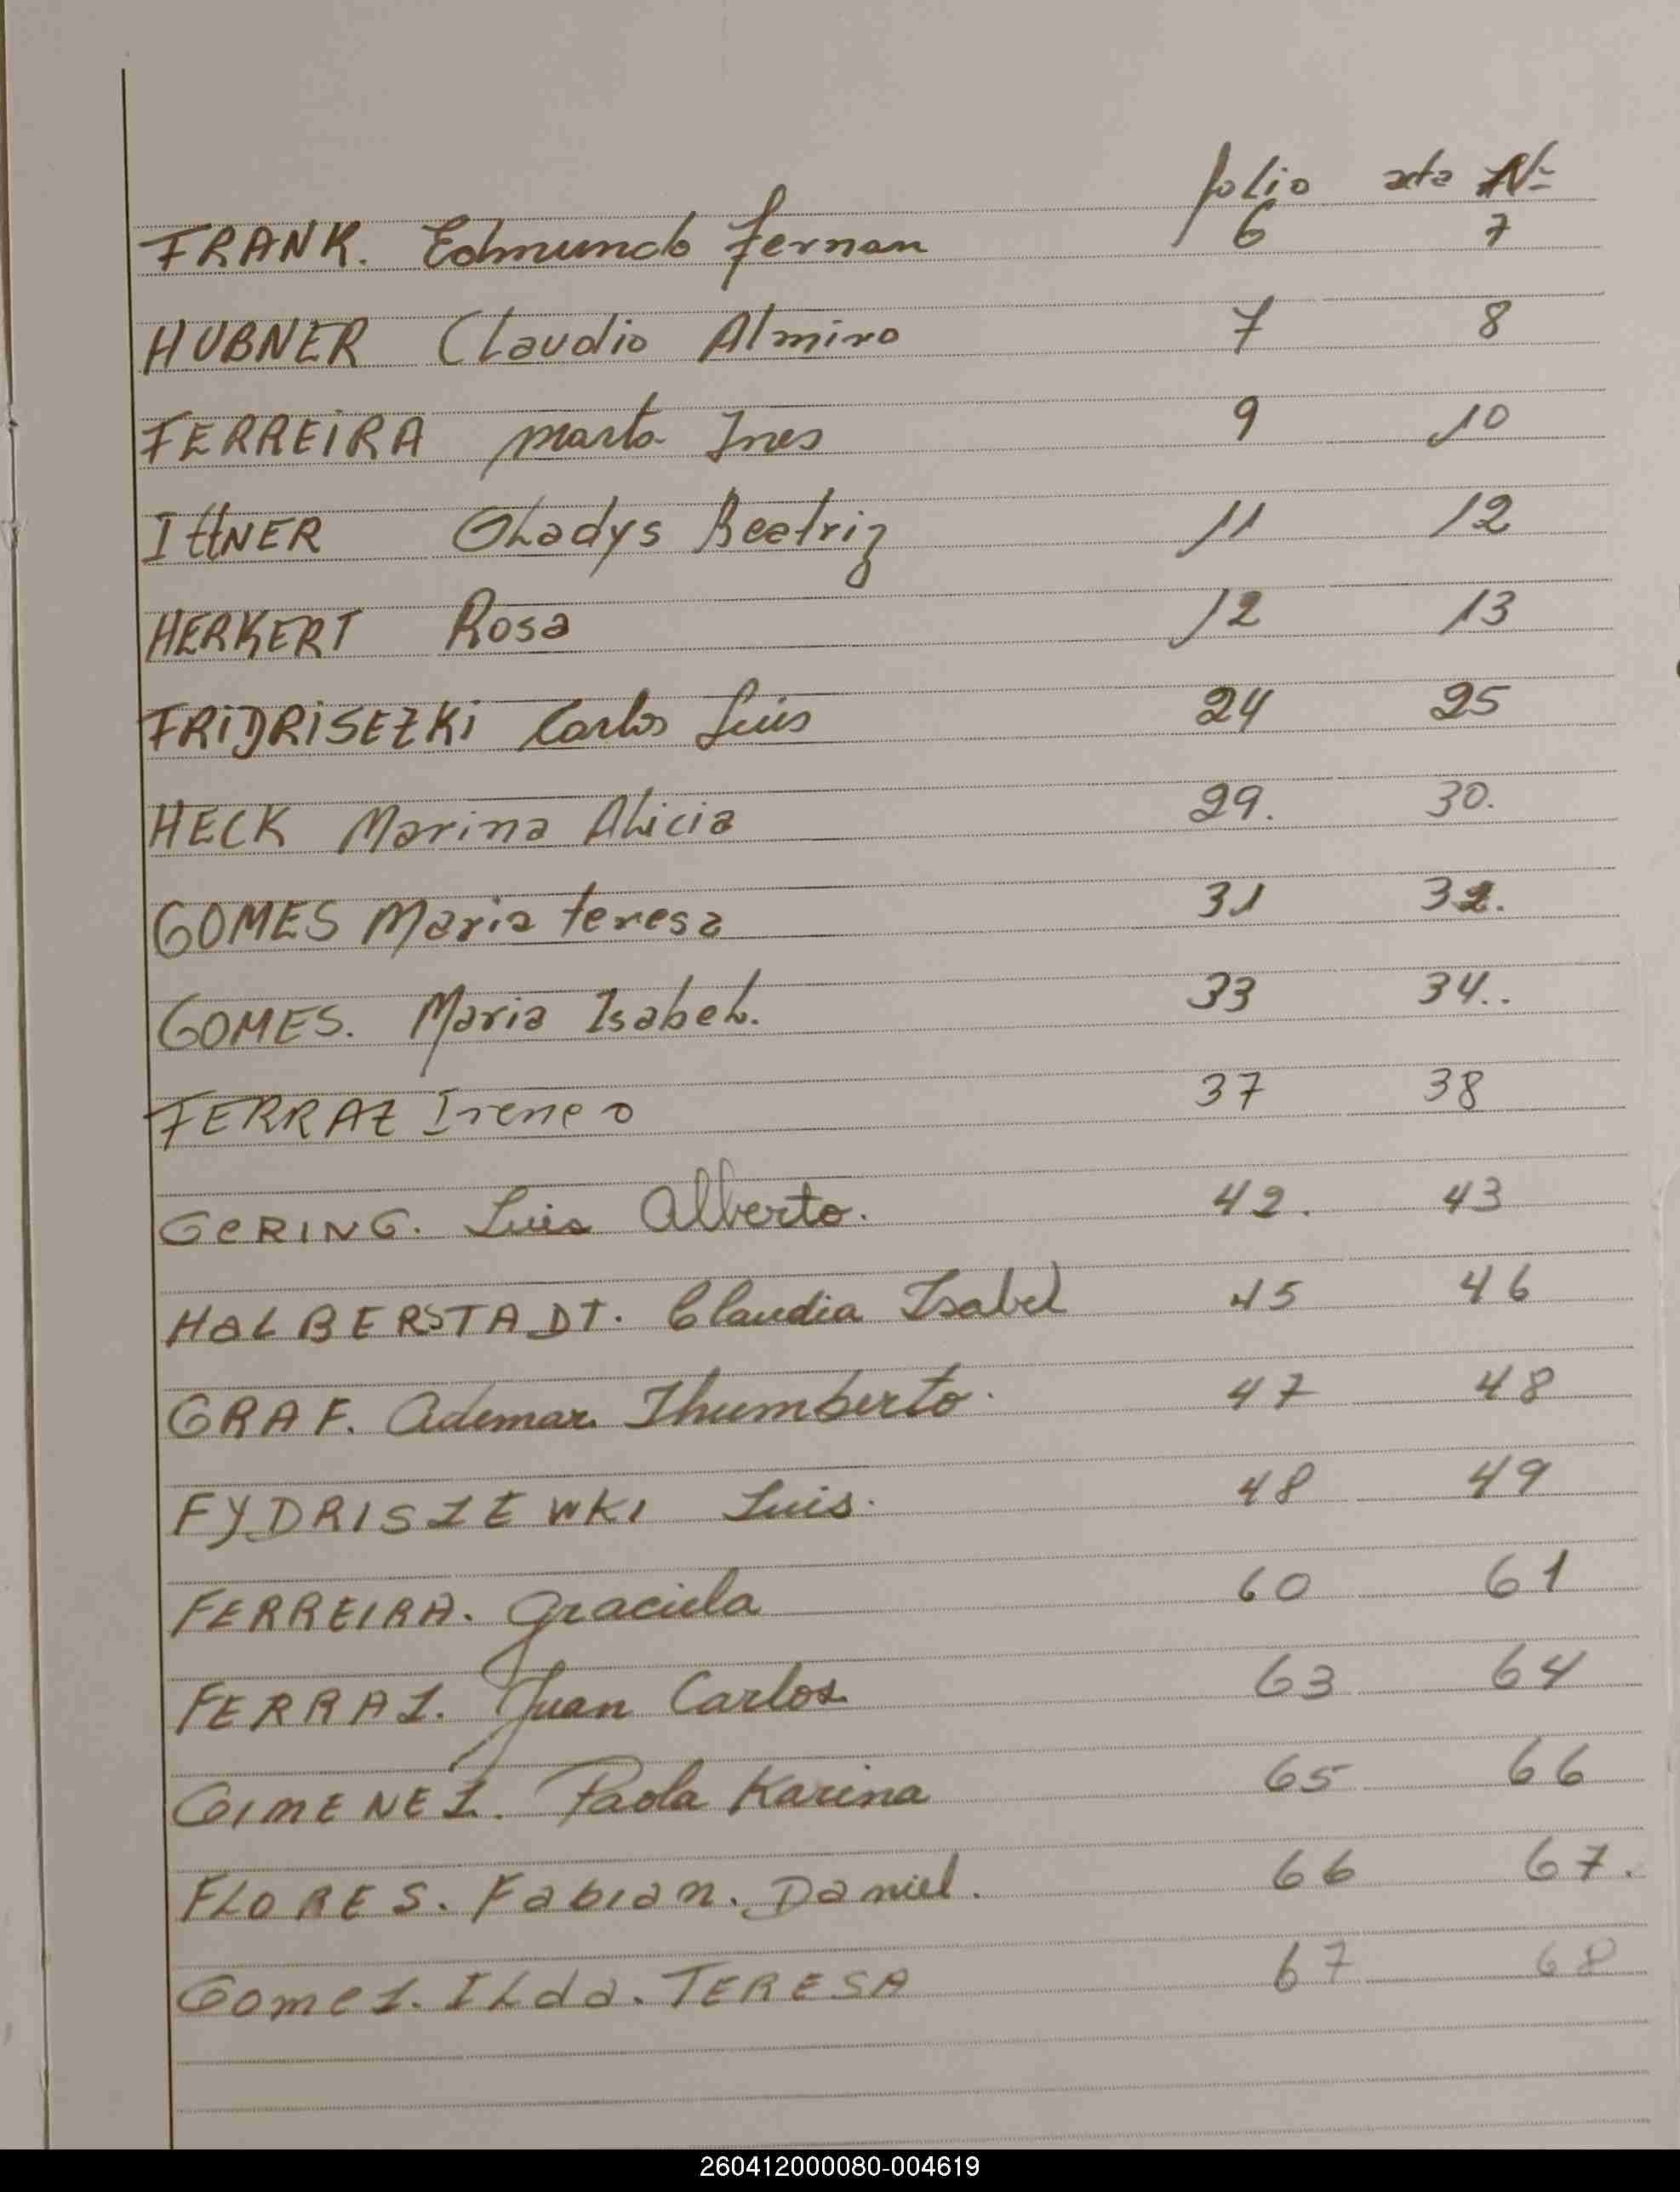 folio acta Nº
FRANK. Edmundo fernan 6 7
HUBNER Claudio Almiro 7 8
FERREIRA marta Ines 9 10
IttNER Gladys Beatriz 11 12
HERKERT Rosa 12 13
FRIDRISEZKI Carlos Luis 24 25
HECK Marina Alicia 29. 30.
GOMES Maria teresa 31 32.
GOMES. Maria Isabel. 33 34..
FERRAZ Ireneo 37 38
GeRING. Luis Alberto. 42. 43
HaLBERSTADT. Claudia Isabel 45 46
GRAF. Ademar Thumberto. 47 48
FYDRISZEWKI Luis. 48 49
FERREIRA. Graciela 60 61
FERRAZ. Juan Carlos 63 64
GIMENEZ. Paola Karina 65 66
FLORES. Fabian. Daniel. 66 67.
Gomez. ILda. TERESA 67 68
260412000080-004619